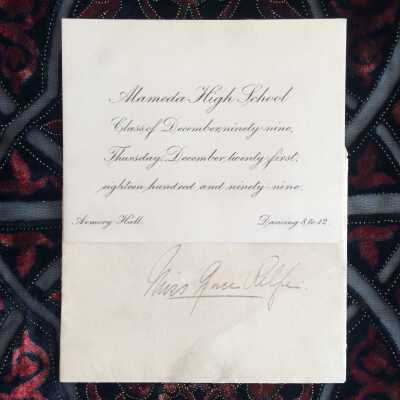 Alameda High School
Class of December, ninety-nine,
Thursday, December twenty-first,
eighteen hundred and ninety-nine.
Armory Hall. Dancing 8 to 12.
Miss Grace Relfe.